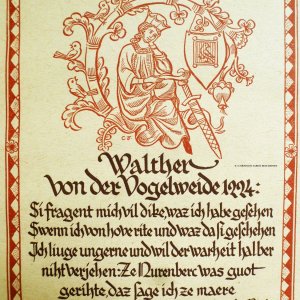 Walther
von der Vogelweide 1224:
Si fragent mich vil dike, waz ich habe gesehen
Swenn ich von hove rite und waz da si geschehen
Ich liuge ungerne und wil der warheit halber
niht verjehen: Ze Nurenberc was guot
gerihte, daz sage ich ze maere